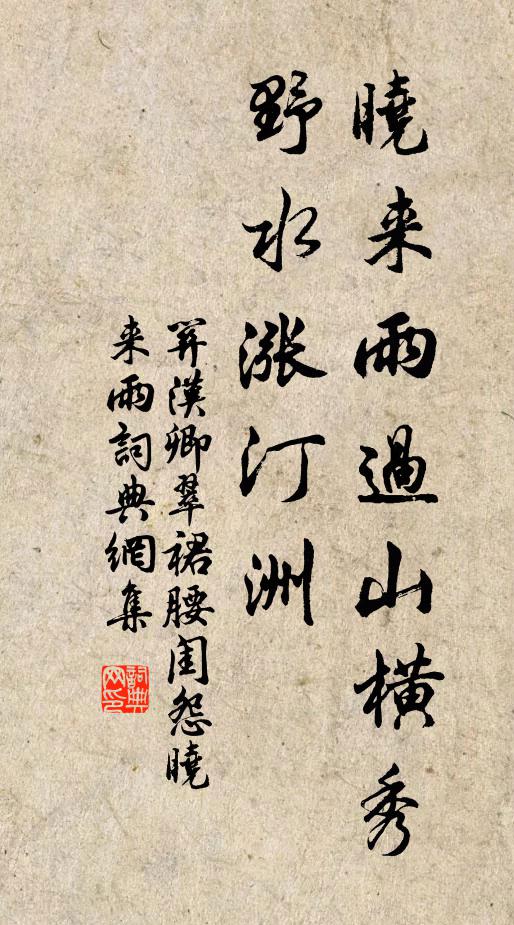 曉来雨過山橫秀
野水漲汀洲
関漢卿翠裙腰閨怨曉
来雨詞典網集
詞典
网印